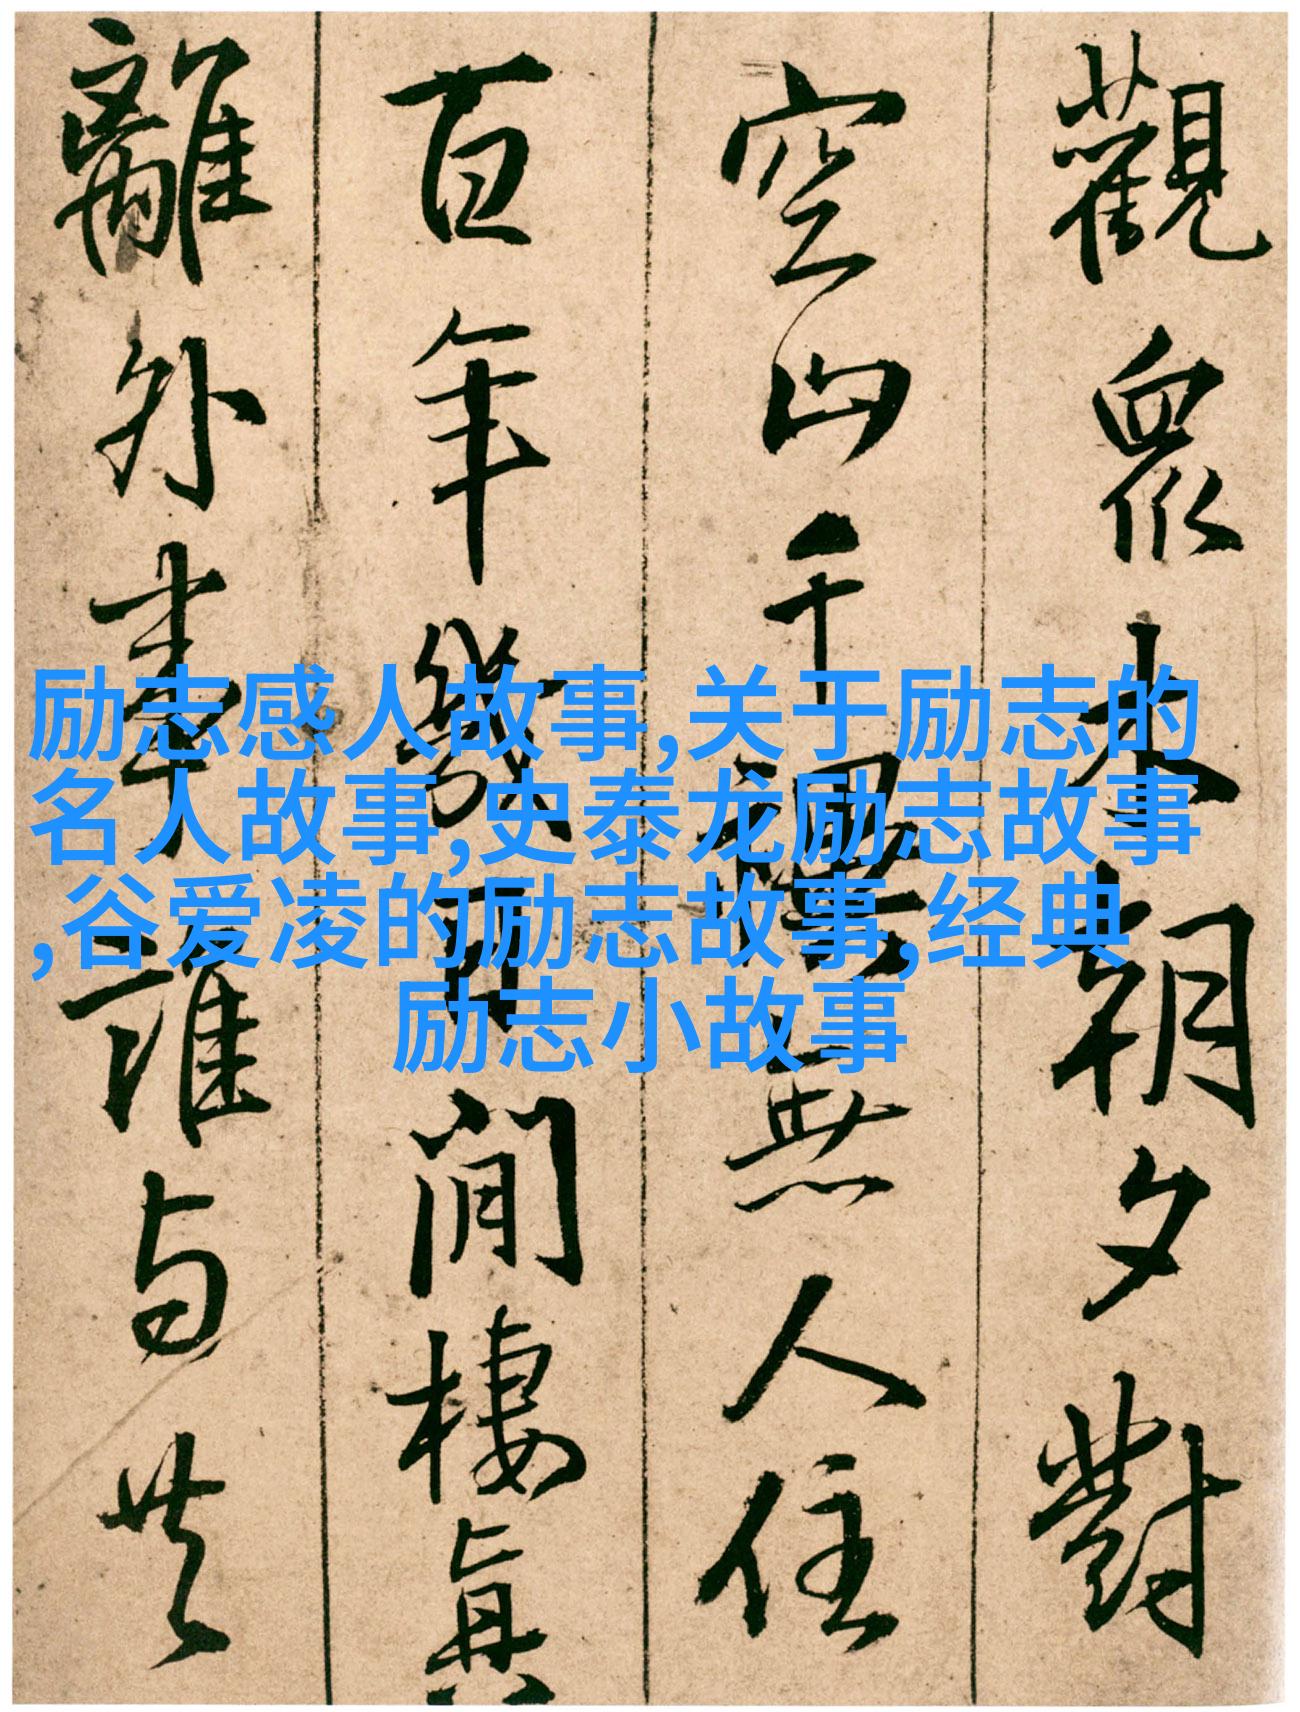 觀衆木朝夕對
空山千無人住
百年幾日閒棲真
離外事誰与共
励志感人故事,关于励志的
名人故事,史泰龙励志故事
,谷爱凌的励志故事,经典
励志小故事